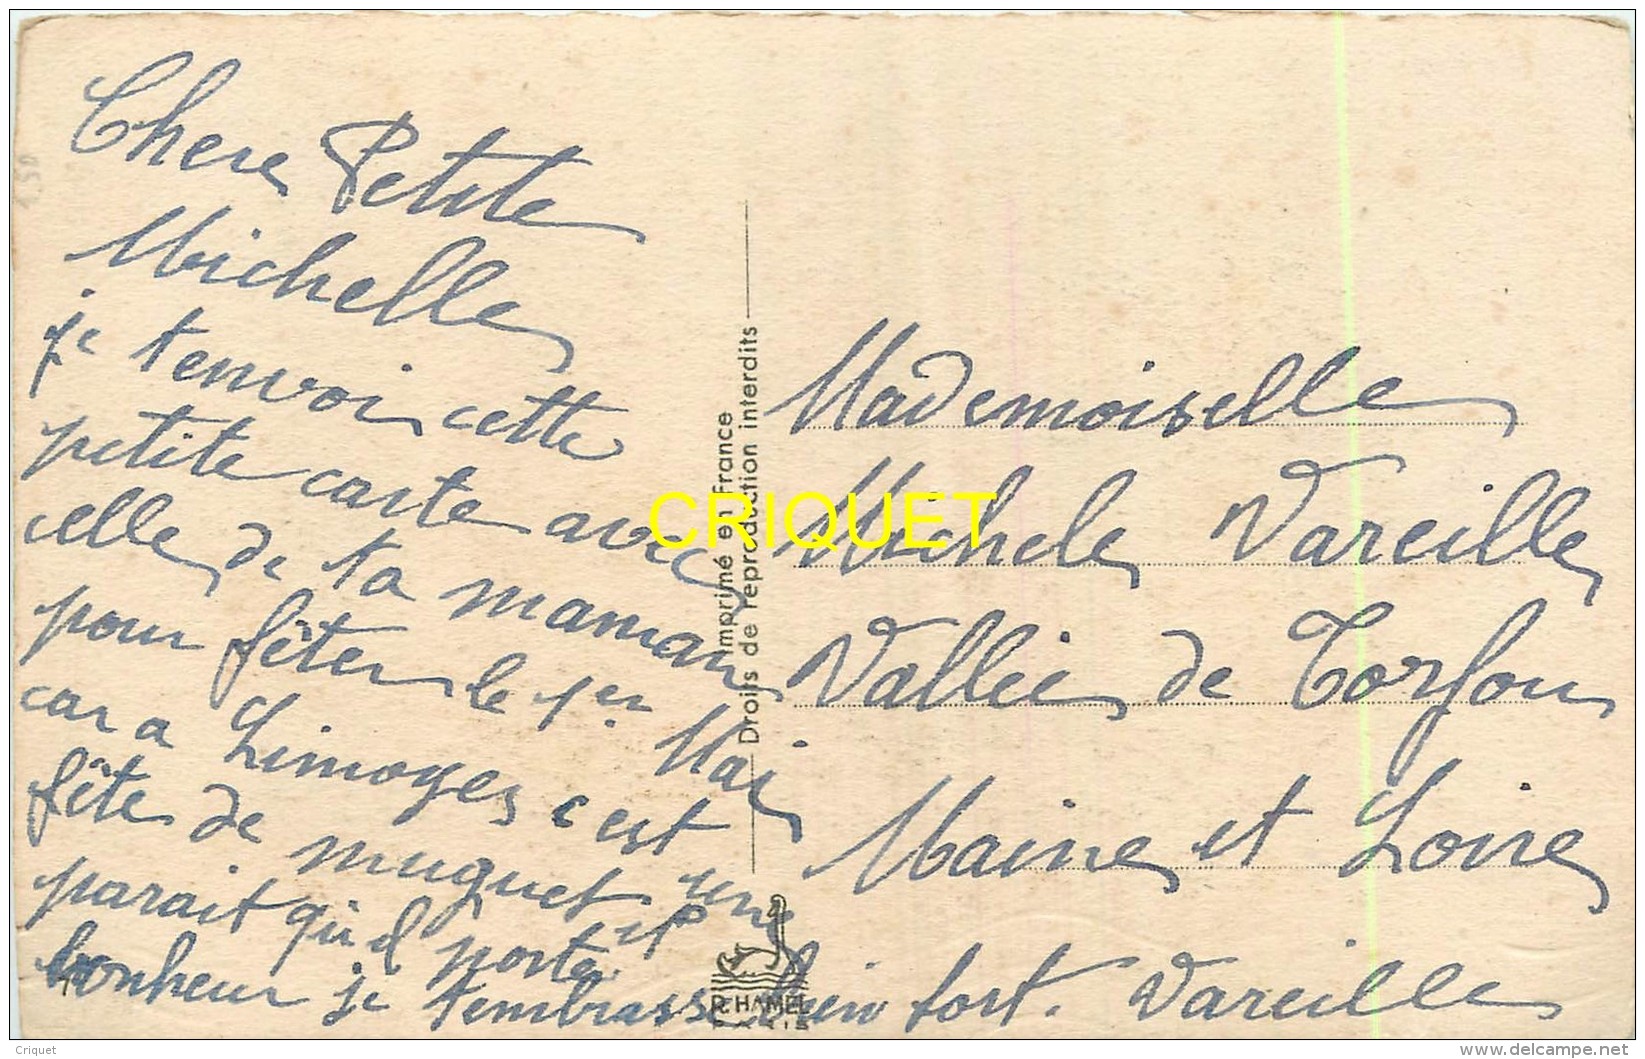 Chere Petite
Michelle
je tenvoi cette
petite carte avec
celle de ta maman
pour fêter le 1er Mai
car a Limoges c est
fête de muguet une
parait qu'il porte
bonheur je tembrasse bien fort. Vareille
Imprimé en France
Droits de reproduction interdits
R. HAMEL
PARIS
Mademoiselle
Michele Vareille
Vallée de Torfou
Maine et Loire
1,50
CRIQUET
Criquet
http://www.delcampe.net